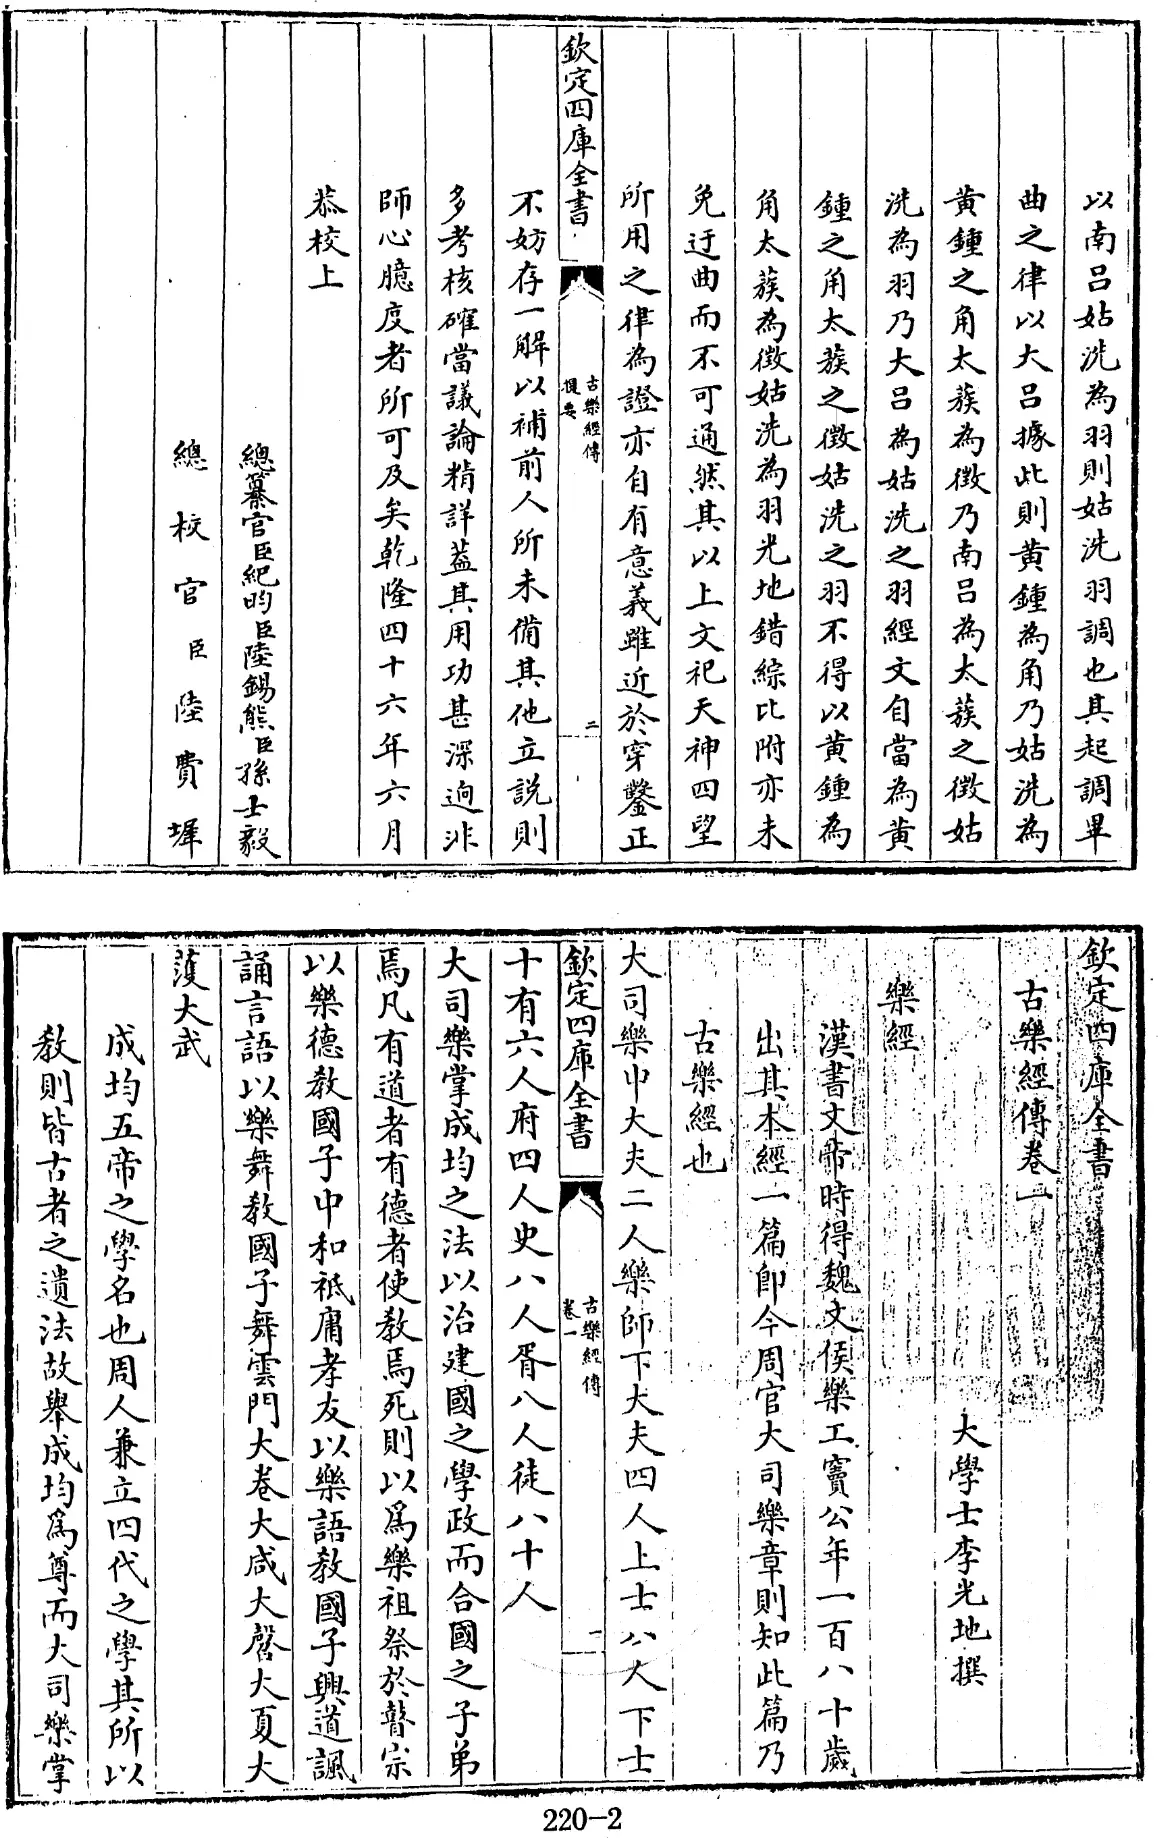 以南呂姑洗為羽則姑洗羽調也其起調畢
曲之律以大呂據此則黃鍾為角乃姑洗為
黃鍾之角太蔟為徵乃南呂為太蔟之徵姑
洗為羽乃大呂為姑洗之羽經文自當為黃
鍾之角太蔟之徵姑洗之羽不得以黃鍾為
角太蔟為徵姑洗為羽光地錯綜比附亦未
免迂曲而不可通然其以上文祀天神四望
所用之律為證亦自有意義雖近於穿鑿正
欽定四庫全書
古樂經傳
提要
二
不妨存一解以補前人所未備其他立說則
多考核確當議論精詳葢其用功甚深迥非
師心臆度者所可及矣乾隆四十六年六月
恭校上
總纂官臣紀昀臣陸錫熊臣孫士毅
總校官臣陸費墀
欽定四庫全書
古樂經傳卷一
大學士李光地撰
樂經
漢書文帝時得魏文侯樂工竇公年一百八十歲
出其本經一篇卽今周官大司樂章則知此篇乃
古樂經也
大司樂中大夫二人樂師下大夫四人上士八人下士
欽定四庫全書
古樂經傳
卷一
一
十有六人府四人史八人胥八人徒八十人
大司樂掌成均之法以治建國之學政而合國之子弟
焉凡有道者有德者使教焉死則以爲樂祖祭於瞽宗
以樂德教國子中和祗庸孝友以樂語教國子興道諷
誦言語以樂舞教國子舞雲門大卷大咸大㲈大夏大
濩大武
成均五帝之學名也周人兼立四代之學其所以
教則皆古者之遺法故舉成均爲尊而大司樂掌
220-2